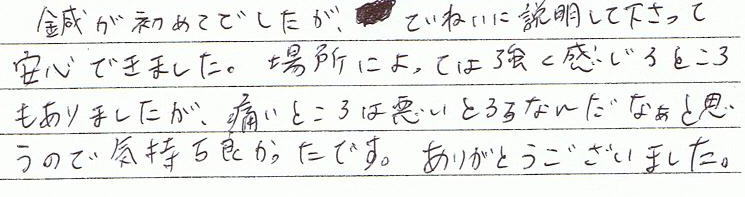 鍼が初めてでしたが、ていねいに説明して下さって
安心できました。場所によっては強く感じるところ
もありましたが、痛いところは悪いところなんだなぁと思
うので気持ち良かったです。ありがとうございました。